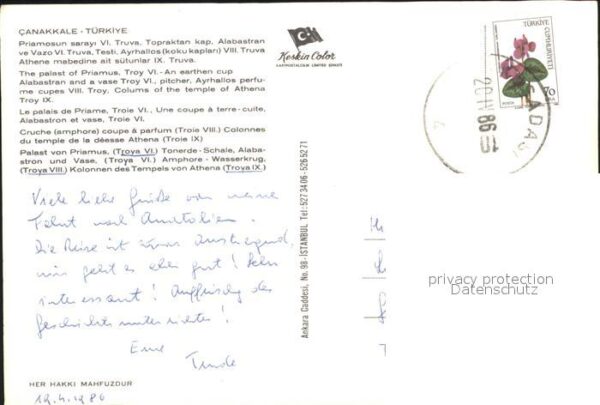 ÇANAKKALE - TÜRKİYE
Priamosun sarayı VI. Truva, Topraktan kap, Alabastran
ve Vazo VI. Truva, Testi, Ayrhallos (koku kapları) VIII. Truva
Athene mabedine ait sütunlar IX. Truva.
The palast of Priamus, Troy VI.- An earthen cup
Alabastran and a vase Troy VI., pitcher, Ayrhallos perfu-
me cupes VIII. Troy, Colums of the temple of Athena
Troy IX.
Le palais de Priame, Troie VI., Une coupe à terre-cuite,
Alabastron et vase, Troie VI.
Cruche (amphore) coupe à parfum (Troie VIII.) Colonnes
du temple de la déesse Athena (Troie IX)
Palast von Priamus, (Troya VI.) Tonerde-Schale, Alaba-
stron und Vase, (Troya VI.) Amphore - Wasserkrug,
(Troya VIII.) Kolonnen des Tempels von Athena (Troya IX.)
Viele liebe Grüße von meiner
Fahrt nach Anatolien.
Die Reise ist zwar anstrengend,
mir geht es aber gut! Sehr
interessant! Auffrischg des
Geschichtsunterrichtes!
Eure
Trude
HER HAKKI MAHFUZDUR
12.4.1986
Keskin Color
KARTPOSTALCILIK LIMITED ŞİRKETİ
Ankara Caddesi, No. 98-İSTANBUL Tel: 527 34 06 - 526 52 71
TÜRKİYE
CUMHURİYETİ
POSTA
70
ADASI
86
privacy protection
Datenschutz